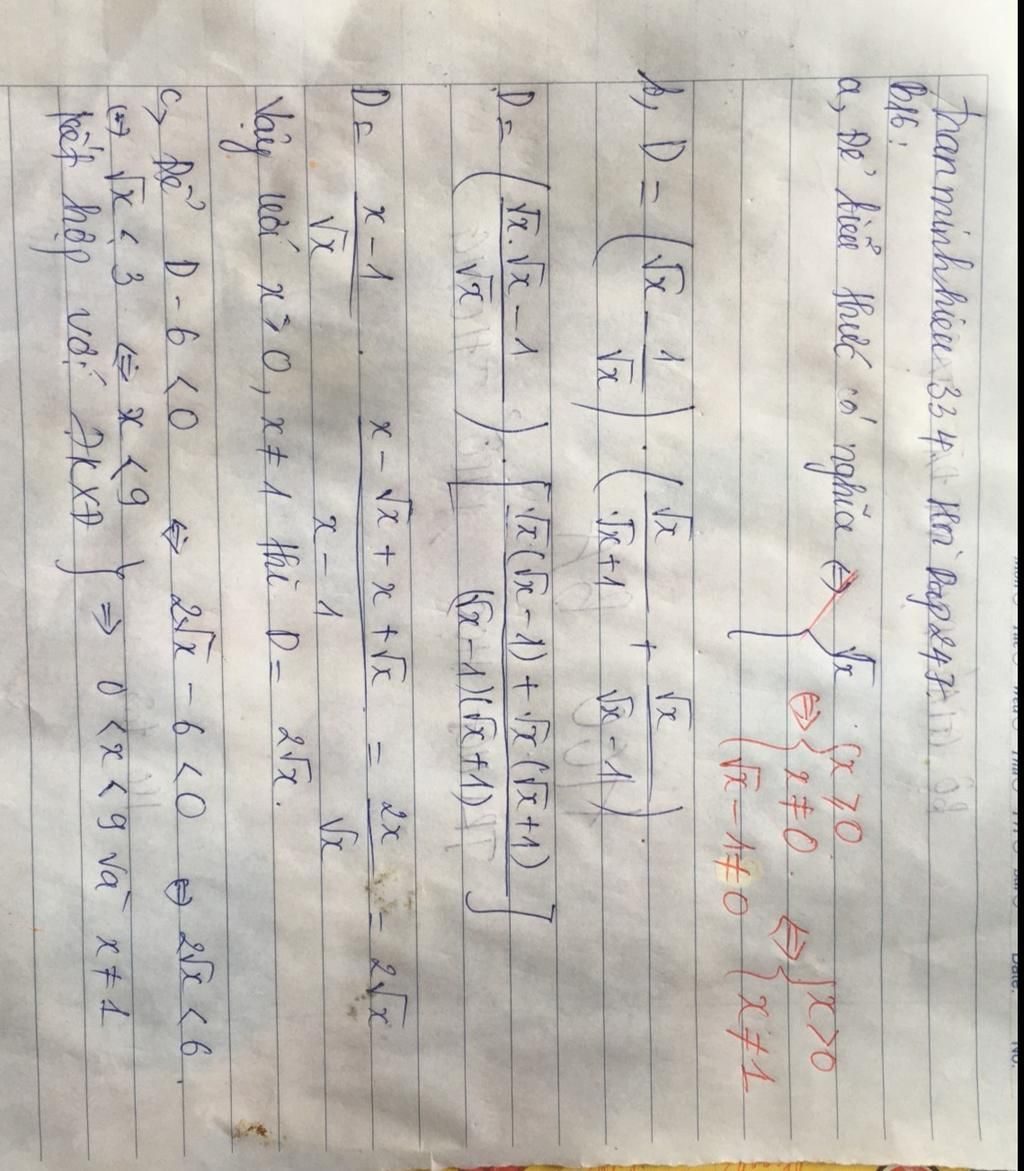 B16:
a, Để biểu thức có nghĩa ⇔ √x ⇔ { x ≥ 0
x ≠ 0
√x - 1 ≠ 0 ⇔ { x > 0
x ≠ 1
b, D = (√x - 1/√x) . (√x/(√x+1) + √x/(√x-1))
D = ((√x.√x - 1)/√x) . [(√x(√x-1) + √x.(√x+1))/((√x-1)(√x+1))]
D = (x-1)/√x . (x - √x + x + √x)/(x-1) = 2x/√x = 2√x
Vậy với x > 0, x ≠ 1 thì D = 2√x.
c, Để D - 6 < 0 ⇔ 2√x - 6 < 0 ⇔ 2√x < 6
⇔ √x < 3 ⇔ x < 9
kết hợp với ĐKXĐ } ⇒ 0 < x < 9 và x ≠ 1